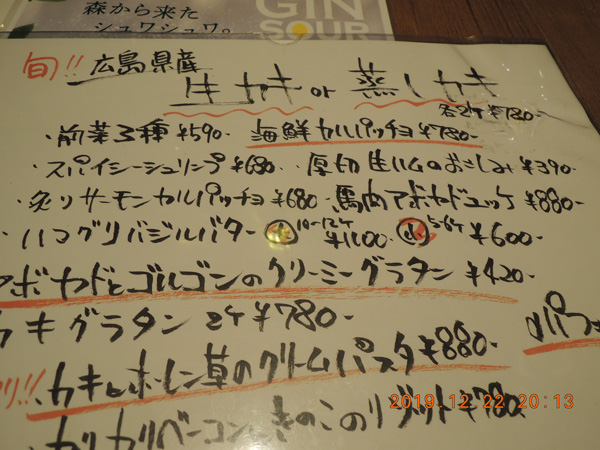 森から来た
シュワシュワ。
GIN
SOUR
旬!! 広島県産
生カキ or 蒸しカキ
各2ケ ¥780-
・前菜3種 ¥590- 海鮮カルパッチョ ¥780-
・スパイシーシュリンプ ¥680- ・厚切生ハムのおさしみ ¥390-
・炙りサーモンカルパッチョ ¥680- 馬肉アボカドユッケ ¥880-
・ハマグリバジルバター 大 10~12ケ ¥1100 小 5~6ケ ¥600-
アボカドとゴルゴンのクリーミーグラタン ¥420-
カキグラタン 2ケ ¥780-
リ!! カキとホーレン草のクリームパスタ ¥880-
カリカリベーコン、きのこのリゾット ¥780-
2019 12 22 20:13